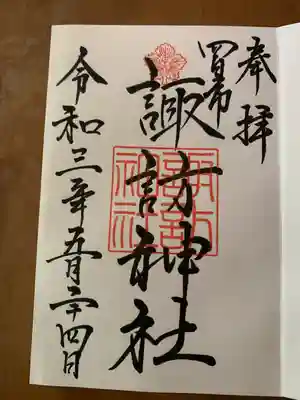 奉拝
四日市
諏訪神社
令和三年五月二十四日
諏訪神社